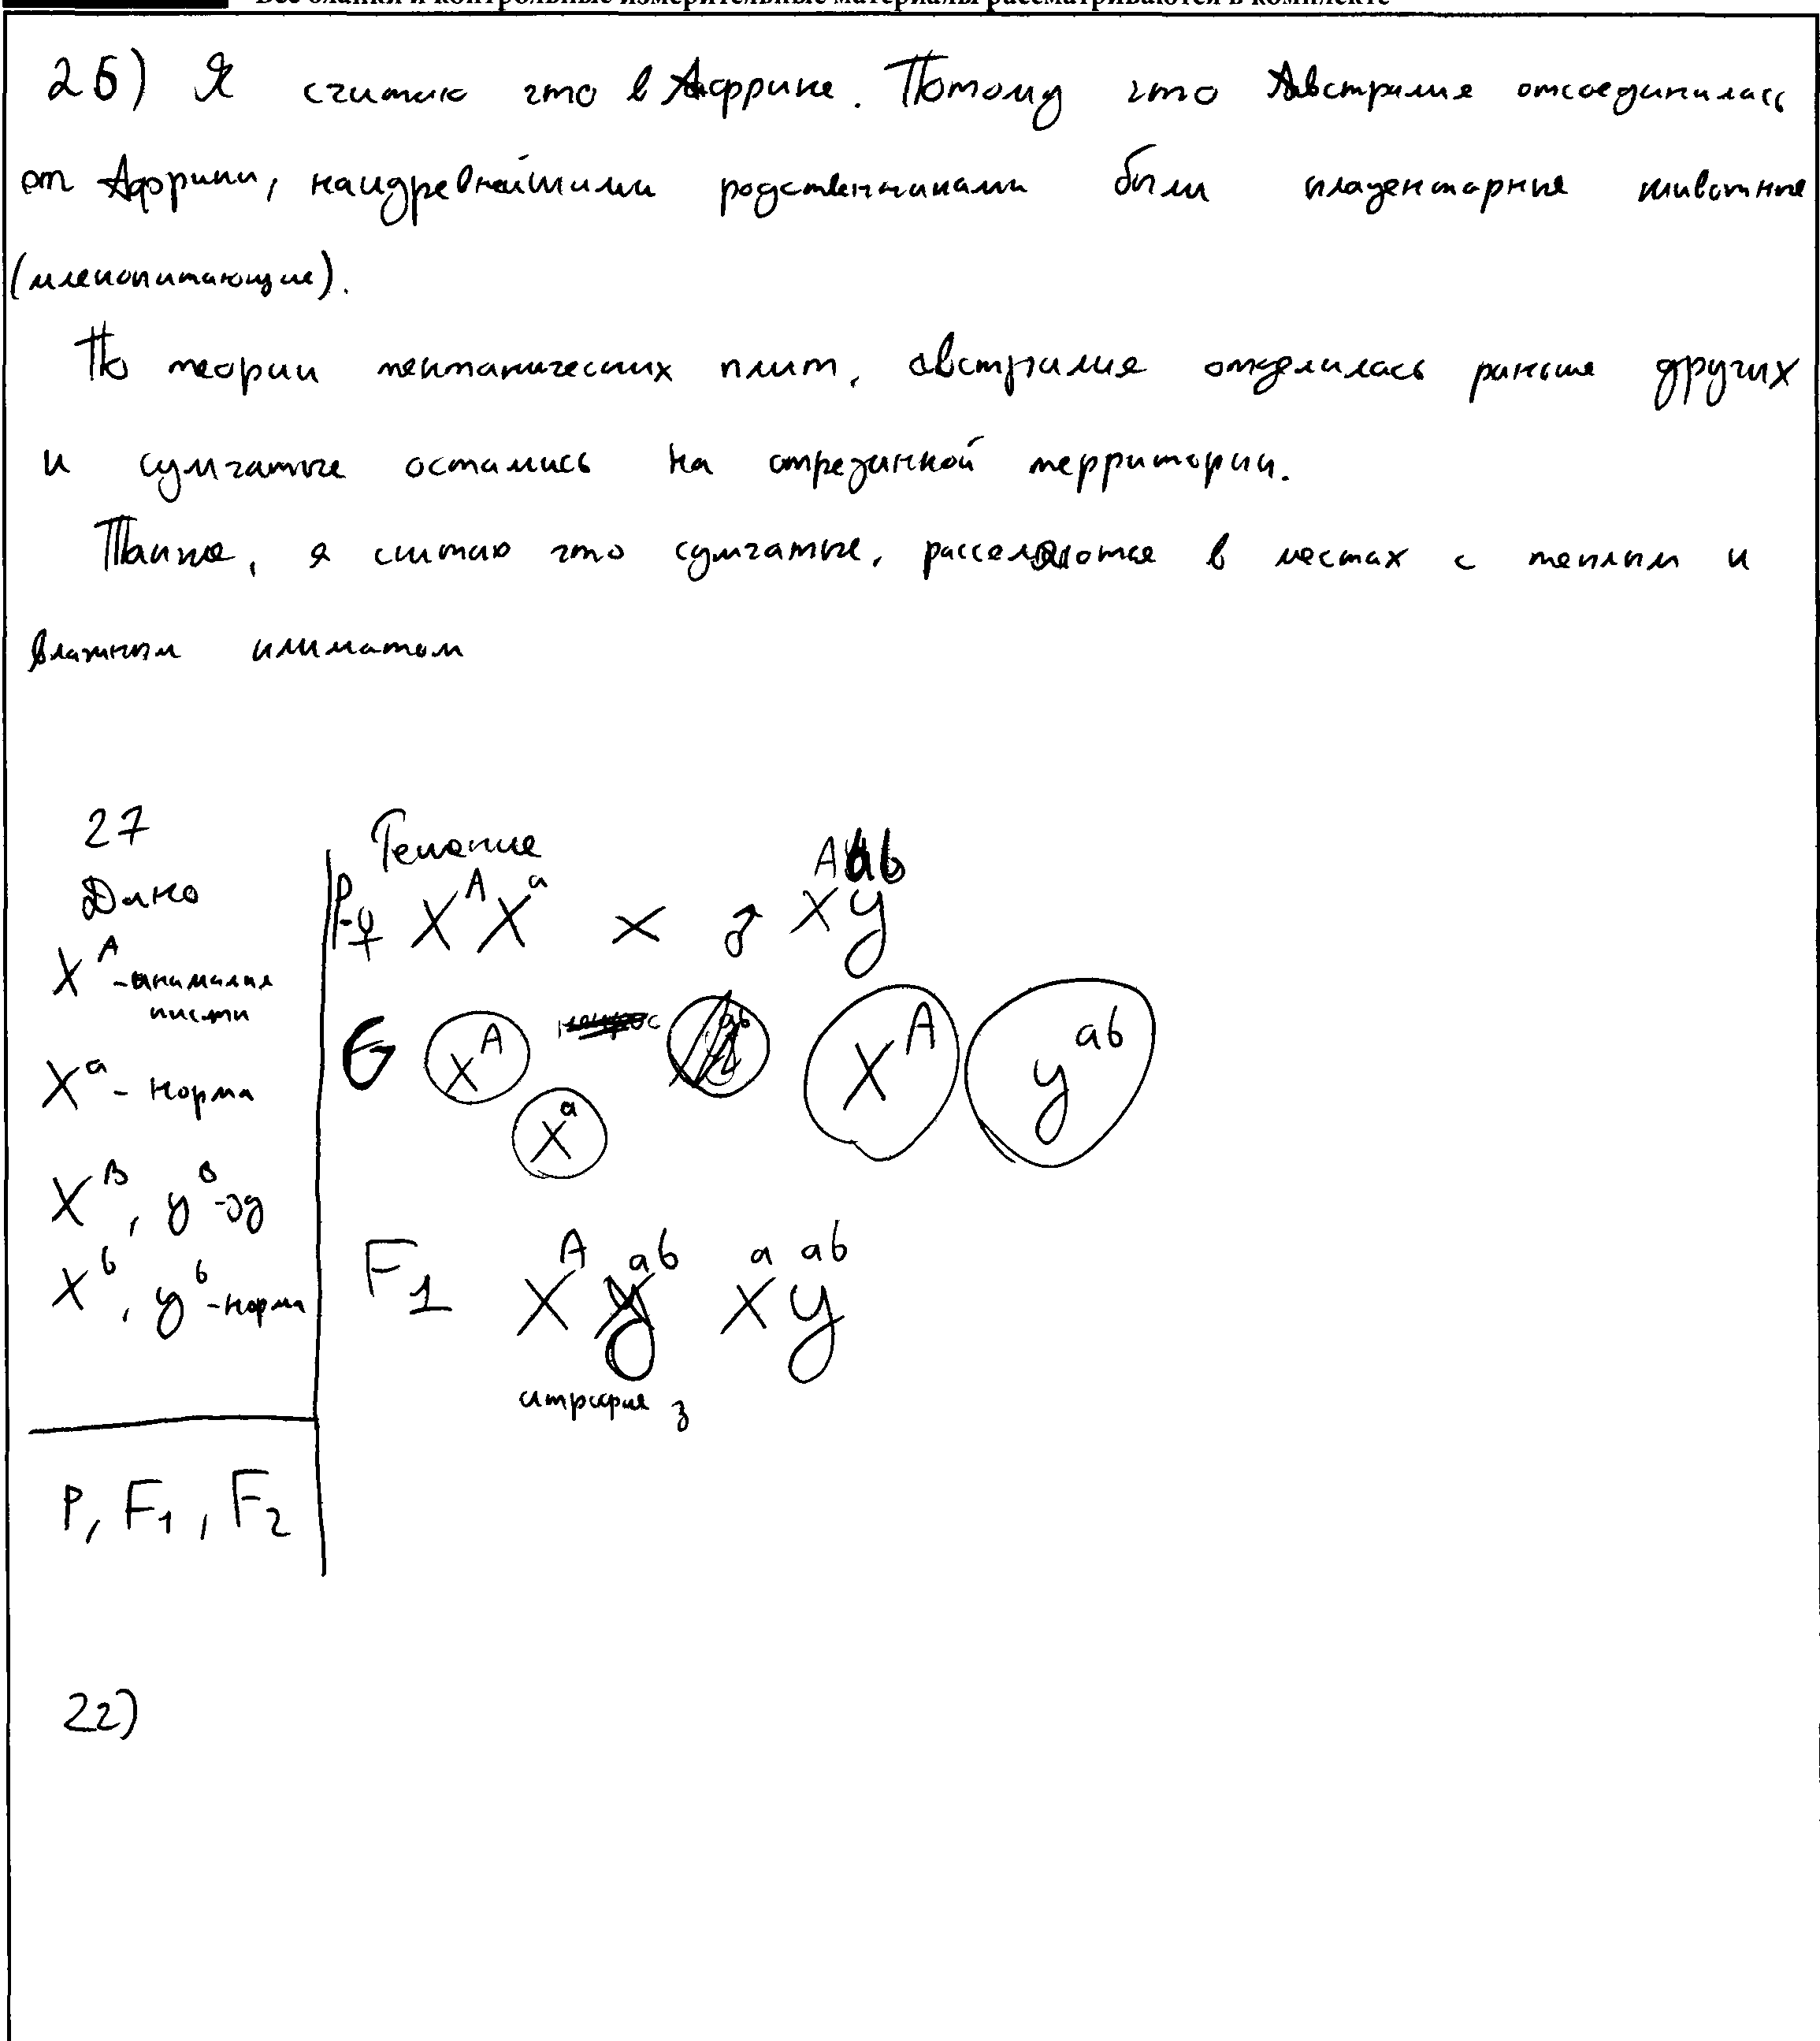 Все бланки и контрольные измерительные материалы рассматриваются в комплекте
26) Я считаю что в Африке. Потому что Австралия отсоединилась
от Африки, наидревнейшими родственниками были плацентарные животные
(млекопитающие).
По теории тектанических плит, австралия отделилась раньше других
и сумчатые остались на отрезанной территории.
Также, я считаю что сумчатые, расселяются в местах с теплым и
влажным климатом
27
Дано
X^A - анималия
кисти
X^a - норма
X^B, y^B - эд
X^b, y^b - норма
P, F1, F2
Решение
P ♀ X^A X^a × ♂ X^A y^ab
G X^A X^a X^A y^ab
F1 X^A y^ab X^a y^ab
22)